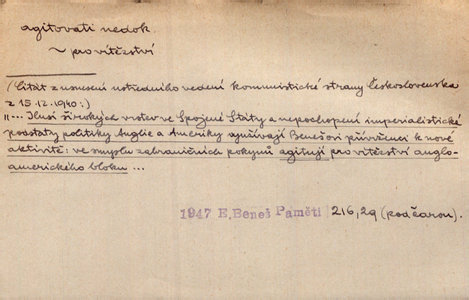 agitovati nedok.
~ pro vítězství
(Citát z usnesení ústředního vedení komunistické strany Československa
z 15. 12. 1940:)
"... Ilusí širokých vrstev ve Spojené Státy a nepochopení imperialistické
podstaty politiky Anglie a Ameriky využívají Benešovi přívrženci k nové
aktivitě: ve smyslu zahraničních pokynů agitují pro vítězství anglo-
amerického bloku ...
1947 E. Beneš Paměti 216, 29 (pod čarou).